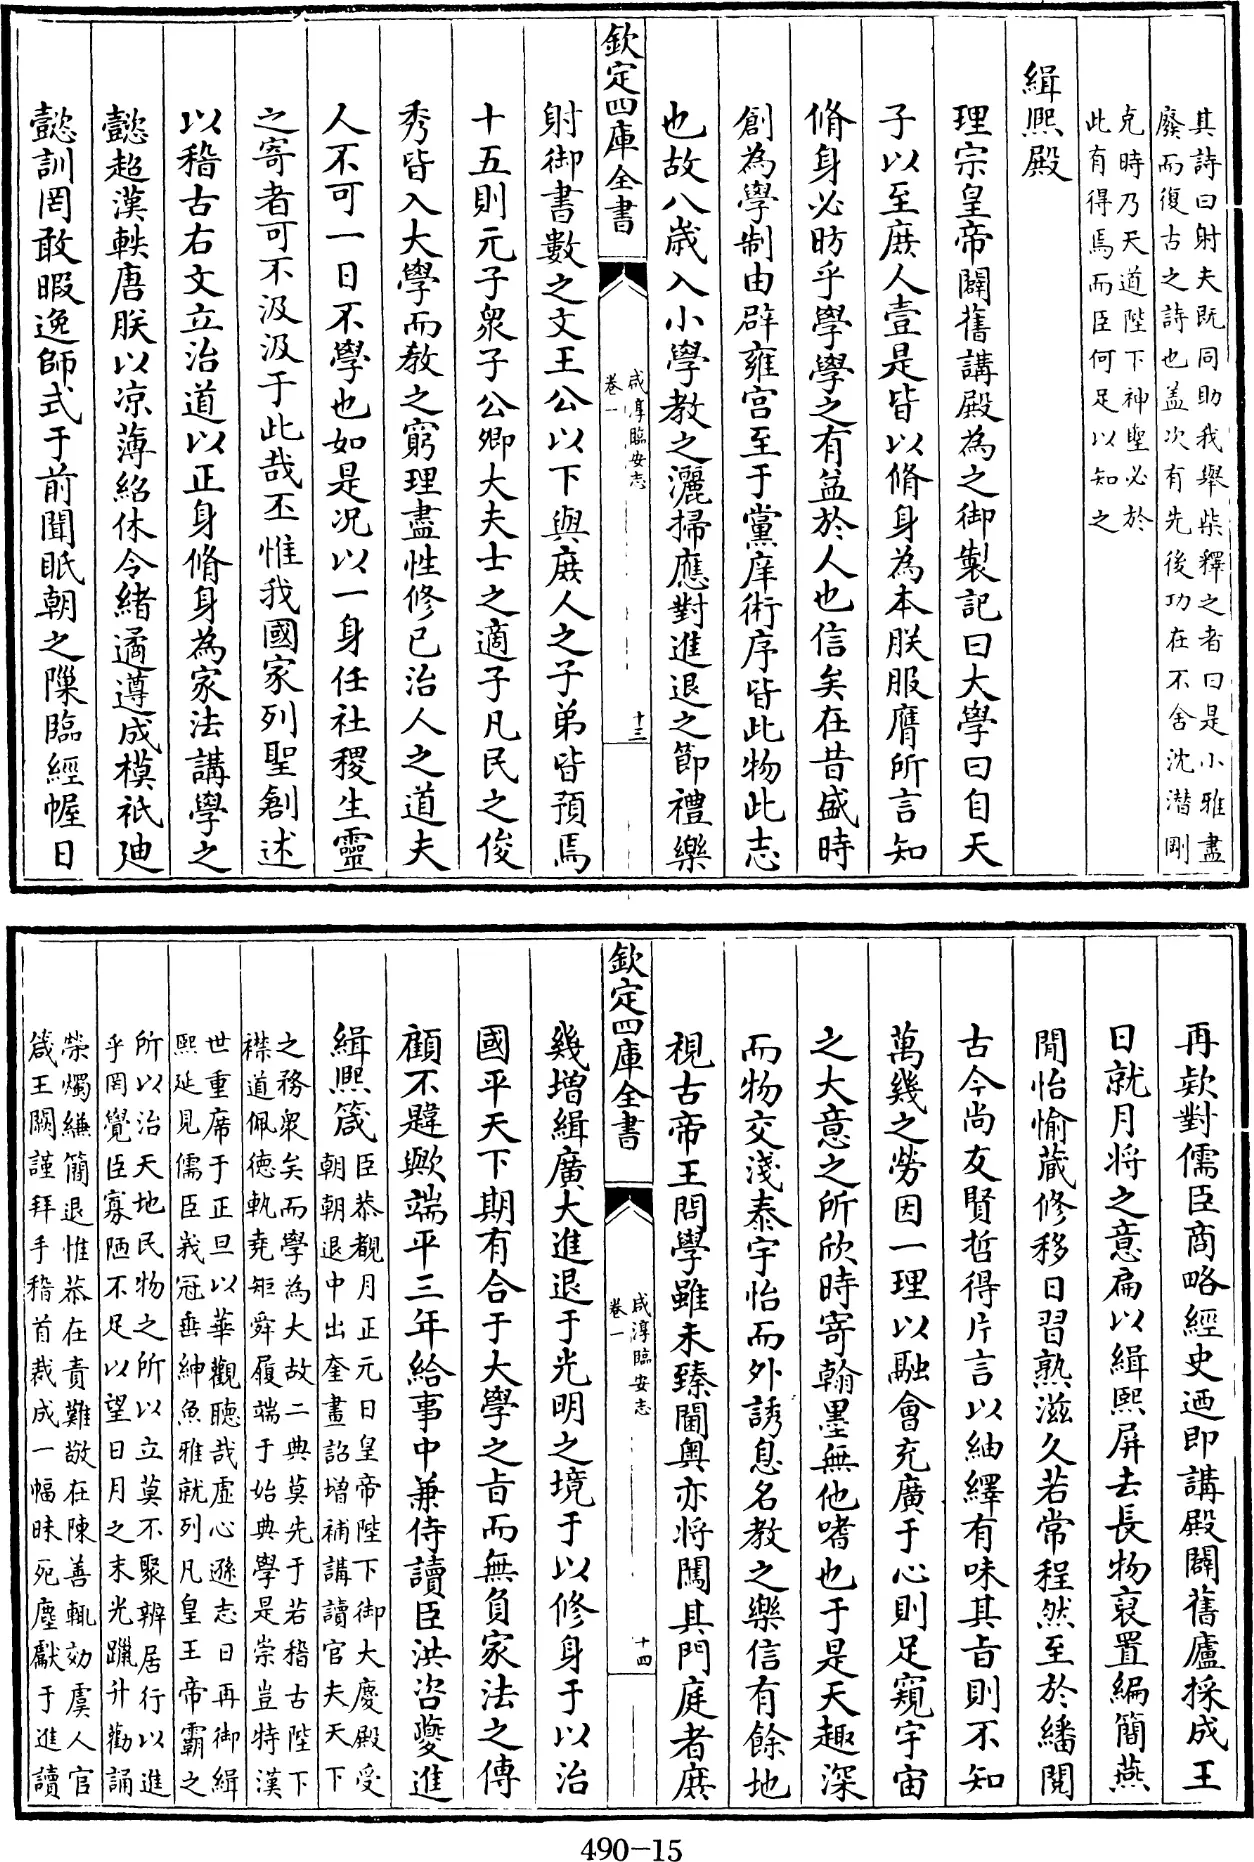 其詩曰射夫既同助我舉柴釋之者曰是小雅盡
廢而復古之詩也盖次有先後功在不舍沈潜剛
克時乃天道陛下神聖必於
此有得焉而臣何足以知之
緝熙殿
理宗皇帝闢舊講殿為之御製記曰大學曰自天
子以至庶人壹是皆以脩身為本朕服膺所言知
脩身必昉乎學學之有益於人也信矣在昔盛時
創為學制由辟雍宫至于黨庠術序皆此物此志
也故八歳入小學教之灑掃應對進退之節禮樂
欽定四庫全書
咸淳臨安志
卷一
十三
射御書數之文王公以下與庶人之子弟皆預焉
十五則元子衆子公卿大夫士之適子凡民之俊
秀皆入大學而教之窮理盡性修已治人之道夫
人不可一日不學也如是况以一身任社稷生靈
之寄者可不汲汲于此哉丕惟我國家列聖創述
以稽古右文立治道以正身脩身為家法講學之
懿超漢軼唐朕以凉薄紹休令緒遹遵成模祇迪
懿訓罔敢暇逸師式于前聞眂朝之隟臨經幄日
再欵對儒臣商略經史迺即講殿闢舊廬採成王
日就月将之意扁以緝熙屏去長物裒置編簡燕
閒怡愉蔵修移日習熟滋久若常程然至於繙閱
古今尚友賢哲得片言以紬繹有味其旨則不知
萬幾之勞因一理以融會充廣于心則足窺宇宙
之大意之所欣時寄翰墨無他嗜也于是天趣深
而物交淺泰宇怡而外誘息名教之樂信有餘地
視古帝王問學雖未臻閫奥亦将闖其門庭者庶
欽定四庫全書
咸淳臨安志
卷一
十四
幾增緝廣大進退于光明之境于以修身于以治
國平天下期有合于大學之旨而無負家法之傳
顧不韙歟端平三年給事中兼侍讀臣洪咨夔進
緝熙箴
臣恭觀月正元日皇帝陛下御大慶殿受
朝朝退中出奎畫詔增補講讀官夫天下
之務衆矣而學為大故二典莫先于若稽古陛下
襟道佩徳軌堯矩舜履端于始典學是崇豈特漢
世重席于正旦以華觀聽哉虚心遜志日再御緝
熙延見儒臣峩冠垂紳魚雅就列凡皇王帝霸之
所以治天地民物之所以立莫不聚辨居行以進
乎罔覺臣寡陋不足以望日月之末光躐升勸誦
榮燭縑簡退惟恭在責難敬在陳善輒効虞人官
箴王闕謹拜手稽首裁成一幅昧死塵獻于進讀
490-15